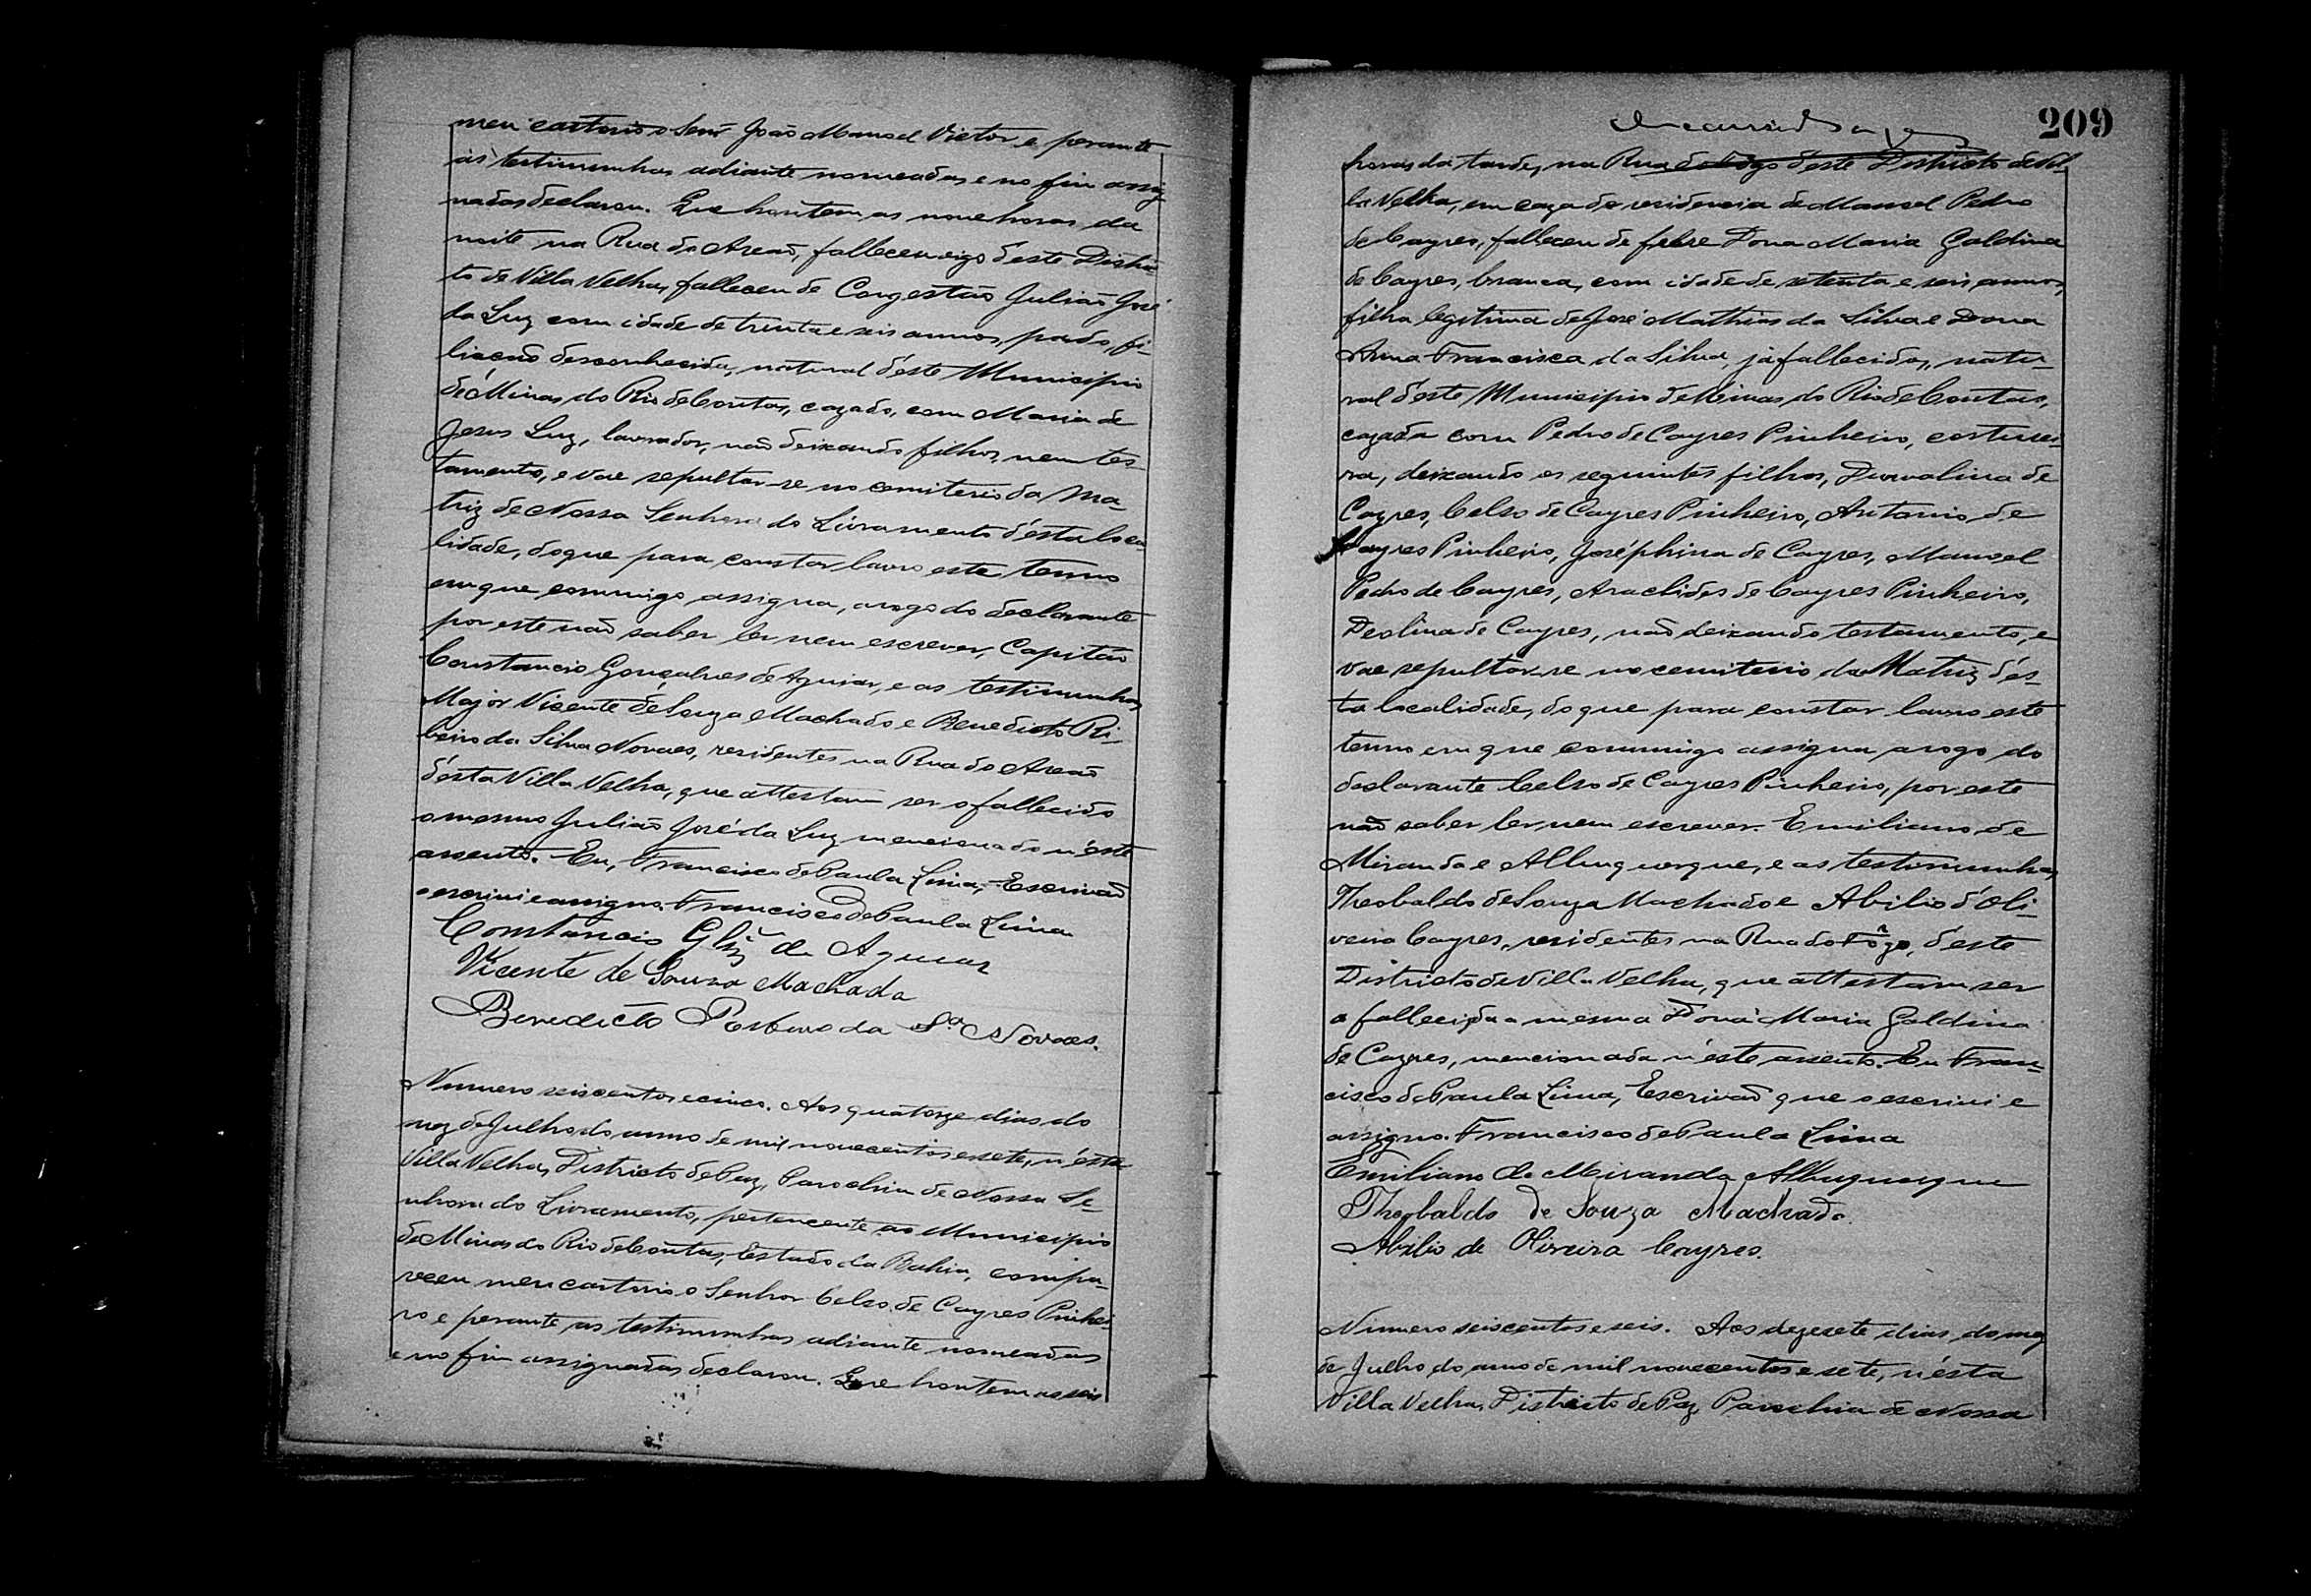 meu cartorio o Senr João Manoel Victor e perante
as testimunhas adiante nomeadas e no fim assig
nadas declarou. Que hontem as nove horas da
noite na Rua do Areaõ, falleceu digo d'este Distric
to de Villa Velha, falleceu de Congestão Julião José
da Luz com idade de trinta e seis annos, pardo, fi-
liação desconhecida, natural d'este Municipio
de Minas do Rio de Contas, cazado, com Maria de
Jesus Luz, lavrador, não deixando filhos, nem tes-
tamento, e vae sepultar-se no cemiterio da Ma-
triz de Nossa Senhora do Livramento d'esta loca
lidade, do que para constar lavro este termo
em que commigo assigna, a rogo do declarante
por este naõ saber ler nem escrever, Capitão
Constancio Gonçalves de Aguiar, e as testimunhas
Major Vicente de Souza Machado e Benedicto Ri-
beiro da Silva Novaes, residentes na Rua do Areaõ
d'esta Villa Velha, que attestam ser o fallecido
o mesmo Julião José da Luz mencionado n'este
assento. Eu, Francisco de Paula Lima, Escrivaõ
o escrivi e assigno. Francisco de Paula Lima
Constancio Glz de Aguiar
Vicente de Souza Machado
Benedicto Ribeiro da Sª Novaes.
Numero seiscentos e cinco. Aos quatorze dias do
mez de Julho do anno de mil novecentos e sete, n'esta
Villa Velha, Districto de Paz, Parochia de Nossa Se-
nhora do Livramento, pertencente ao Municipio
de Minas do Rio de Contas, Estado da Bahia, compa-
receu meu cartorio o Senhor Celso de Cayres Pinhei-
ro e perante as testimunhas adiante nomeadas
e no fim assignadas declarou. Que hontem as seis
209
horas da tarde, na Rua do Fogo d'este Districto de Vil-
la Velha, em caza de residencia de Manoel Pedro
de Cayres, falleceu de febre Dona Maria Galdina
de Cayres, branca, com idade de setenta e seis annos,
filha legitima de José Mathias da Silva e Dona
Anna Francisca da Silva, já fallecidos, natu-
ral d'este Municipio de Minas do Rio de Contas,
cazada com Pedro de Cayres Pinheiro, costurei-
ra, deixando os seguintes filhos, Durvalina de
Cayres, Celso de Cayres Pinheiro, Antonio de
Cayres Pinheiro, Joséphina de Cayres, Manoel
Pedro de Cayres, Araclides de Cayres Pinheiro,
Deolina de Cayres, naõ deixando testamento, e
vae sepultar-se no cemiterio da Matriz d'es-
ta localidade, do que para constar lavro este
termo em que commigo assigna a rogo do
declarante Celso de Cayres Pinheiro, por este
naõ saber ler, nem escrever. Emiliano de
Miranda e Albuquerque, e as testimunhas
Theobaldo de Souza Machado e Abilio d'Oli-
veira Cayres, residentes na Rua do Fôgo, d'este
Districto de Villa Velha, que attestam ser
a fallecida a mesma Dona Maria Galdina
de Cayres, mencionada n'este assento. Eu Fran-
cisco de Paula Lima, Escrivaõ que o escrivi e
assigno. Francisco de Paula Lima
Emiliano de Miranda Albuquerque
Theobaldo de Souza Machado.
Abilio de Oliveira Cayres.
Numero seiscentos e seis. Aos dezesete dias do mez
de Julho do anno de mil novecentos e sete, n'esta
Villa Velha, Districto de Paz, Parochia de Nossa